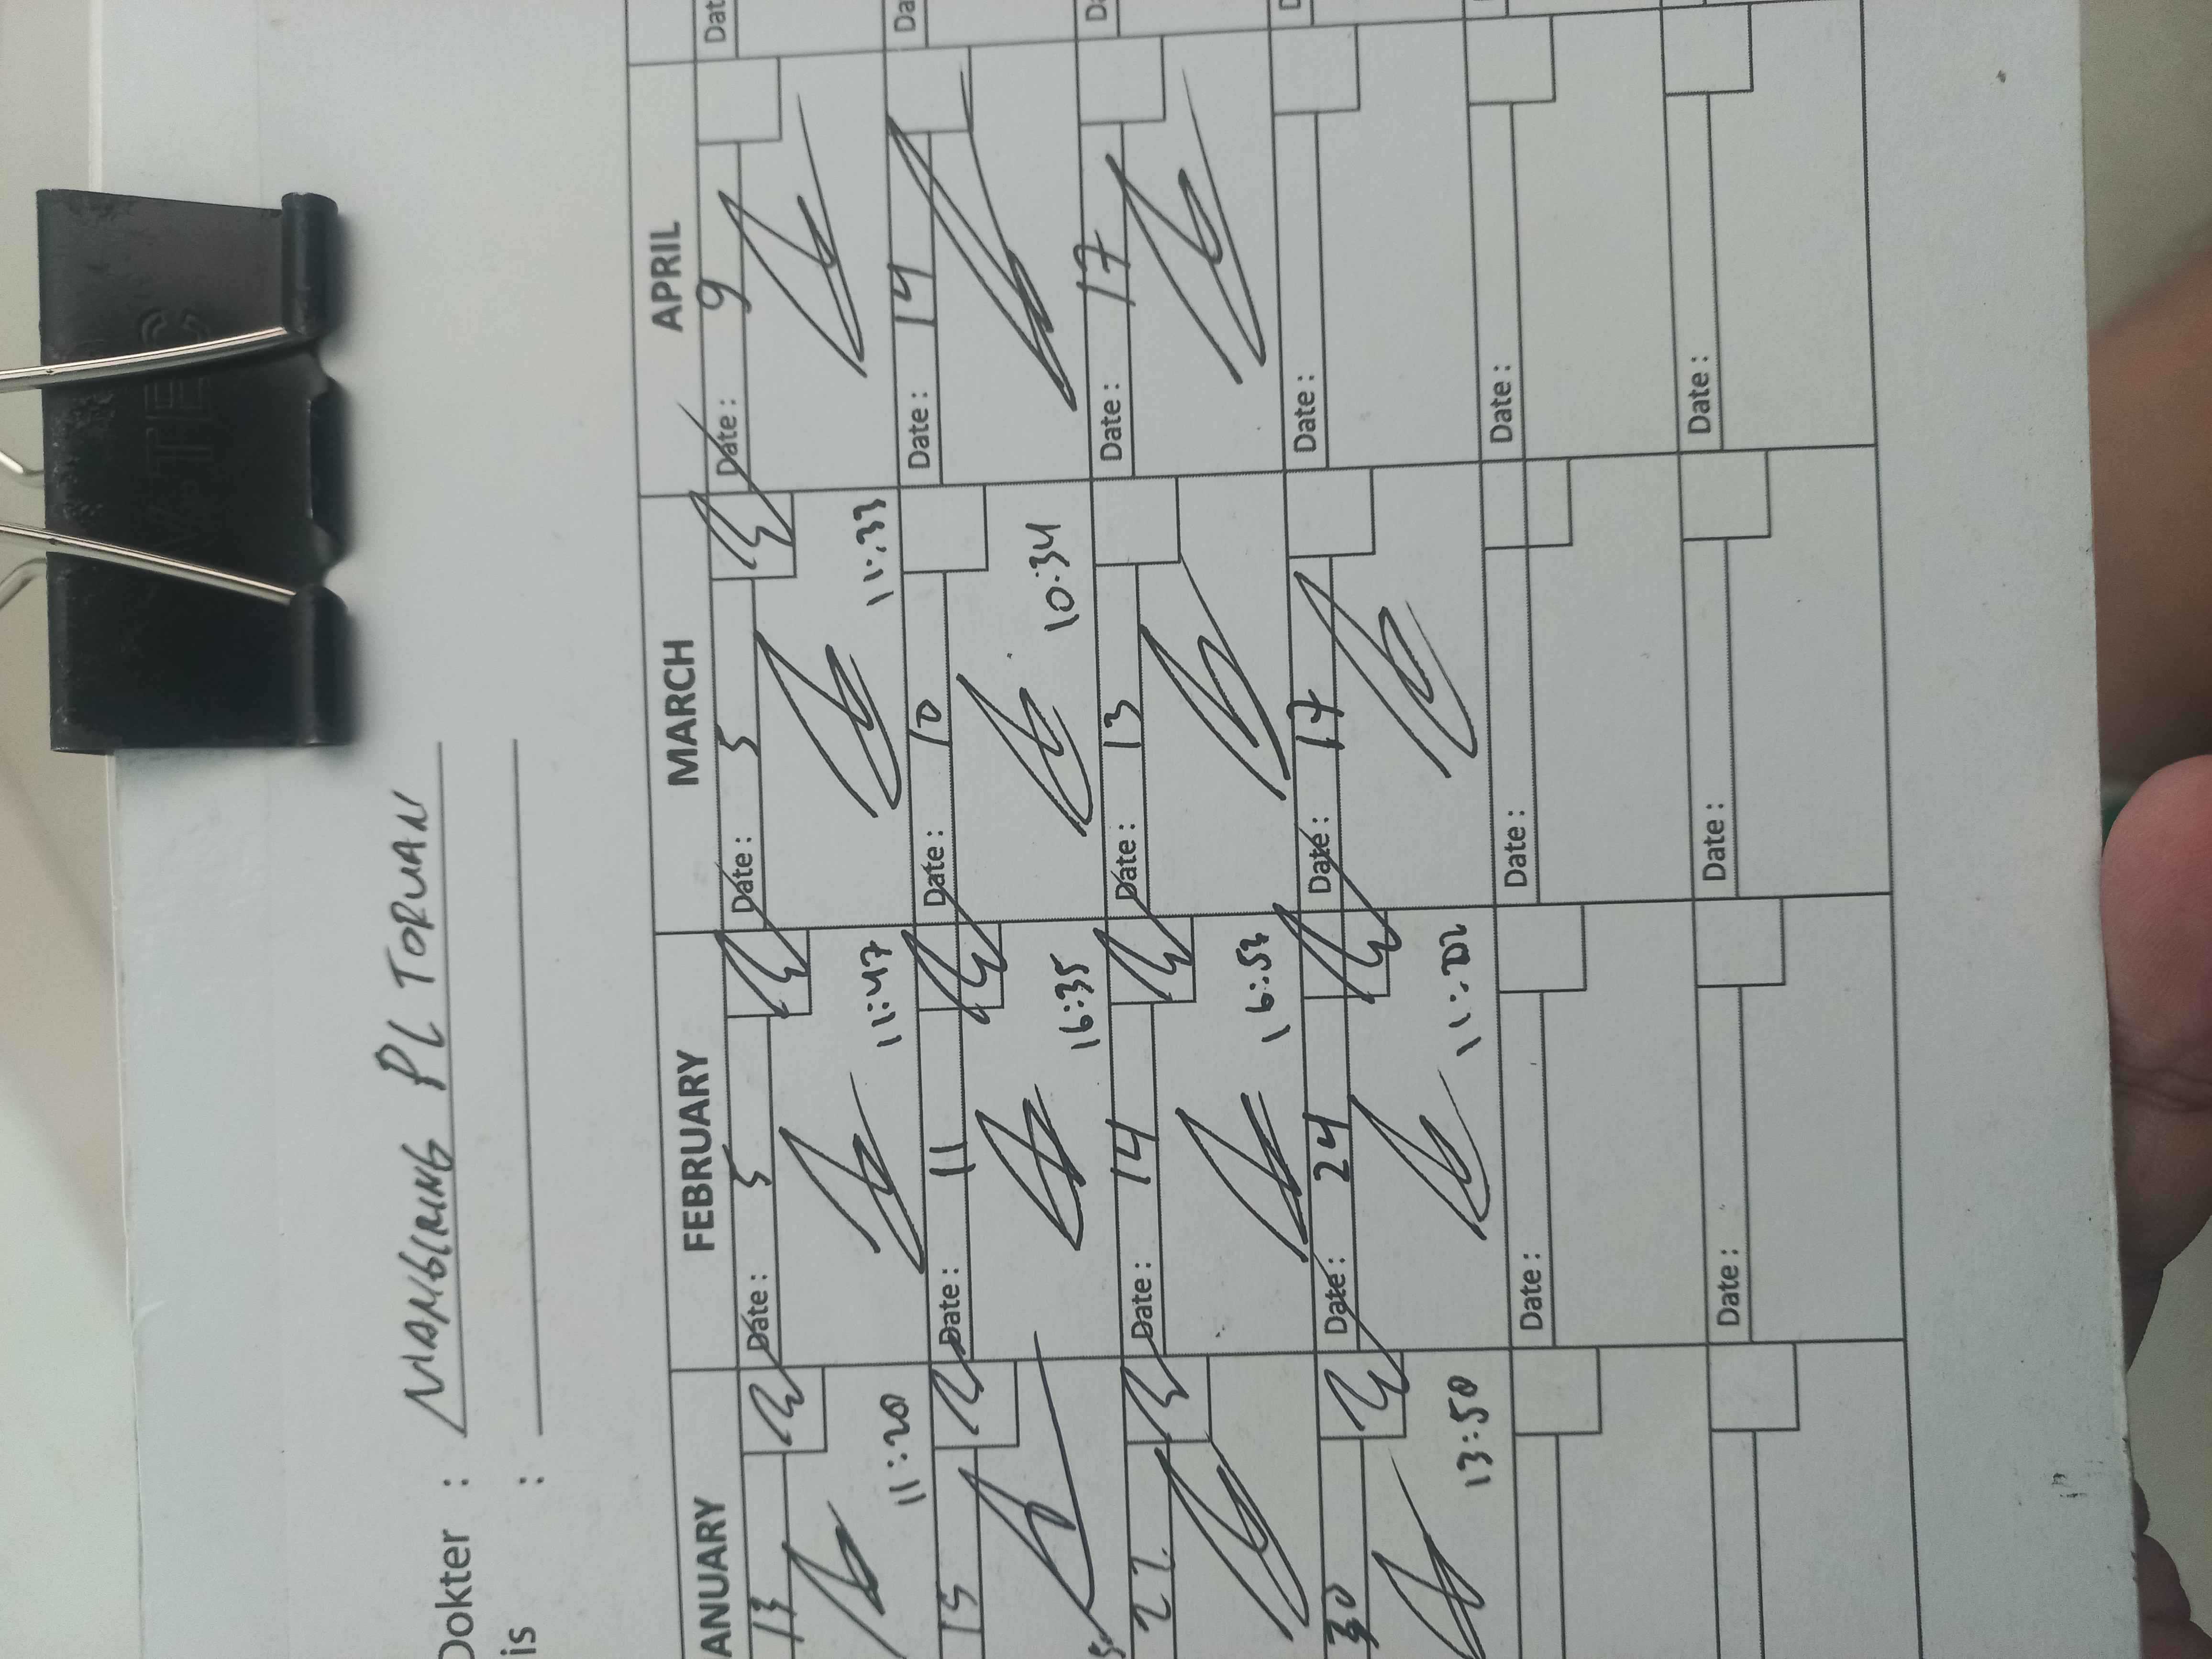 Dokter :
is :
ANUARY FEBRUARY MARCH APRIL
13 Date : 5 Date : 5 Date : 9 Dat
11:20 11:47 11:33
15 Date : 11 Date : 10 Date : 14 Da
16:35 10:34
22 Date : 14 Date : 13 Date : 17 Da
16:53
30 Date : 24 Date : 17 Date : D
13:50 11:02
Date : Date : Date :
Date : Date : Date :